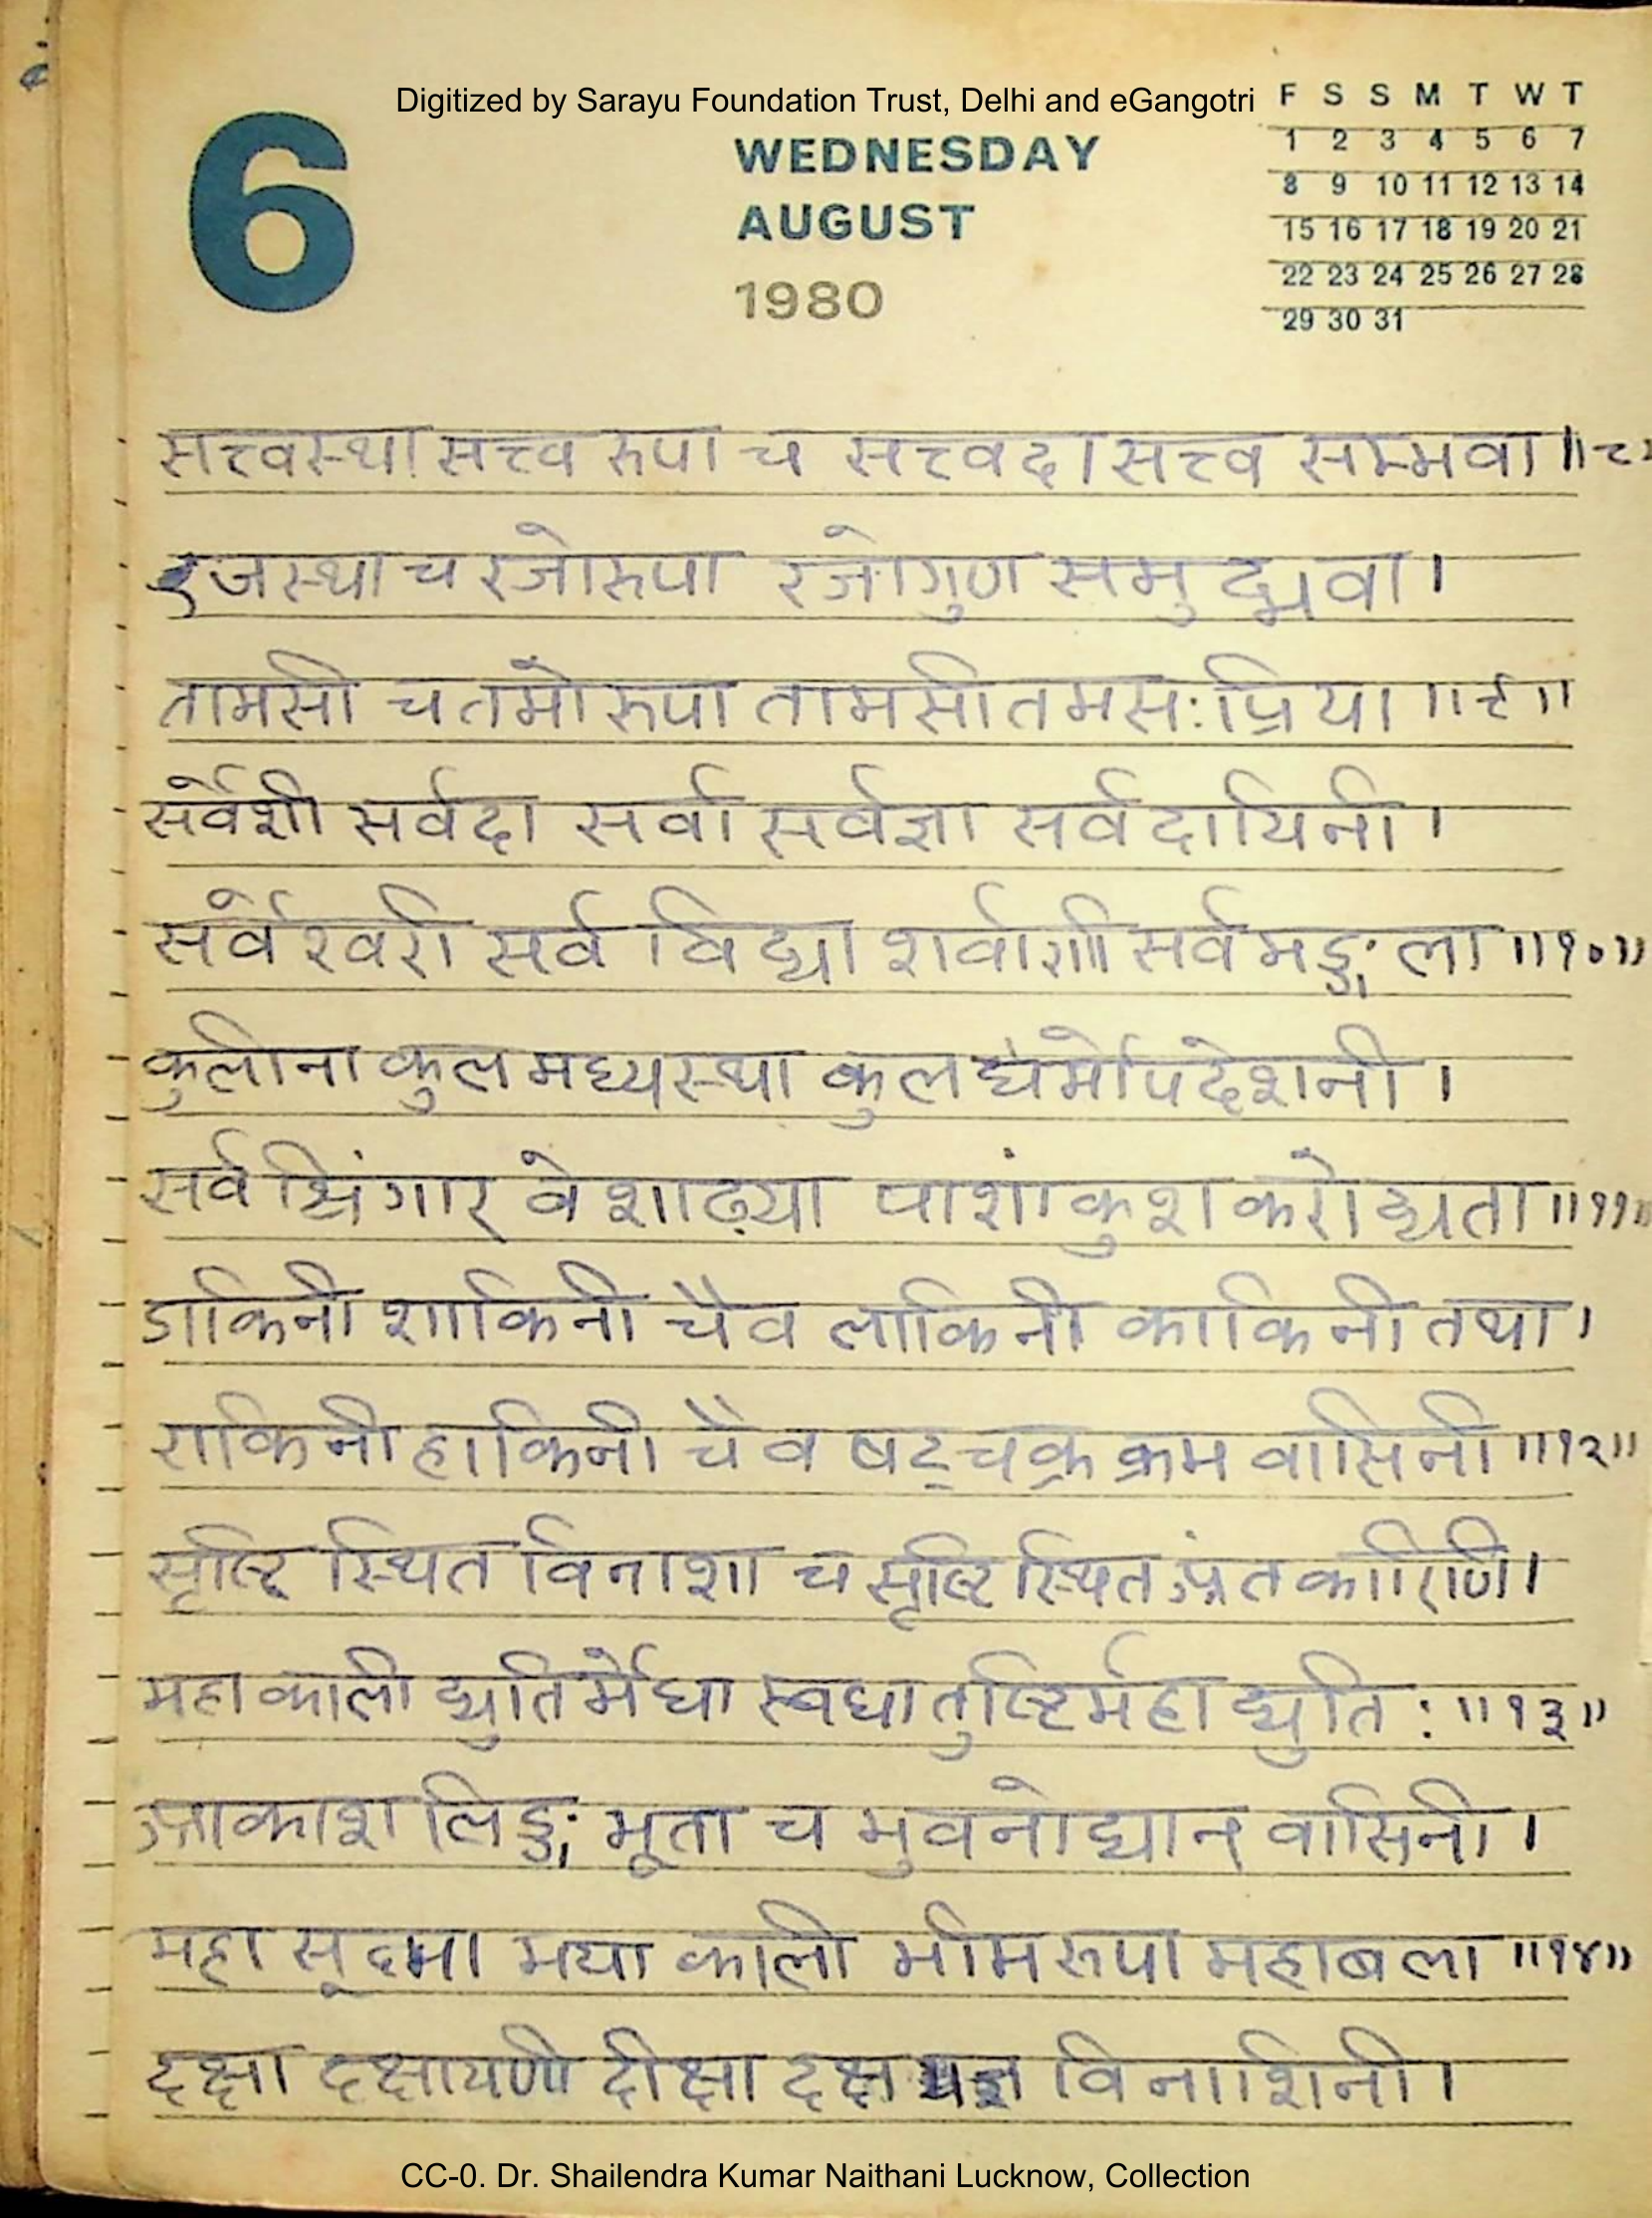 Digitized by Sarayu Foundation Trust, Delhi and eGangotri
6
WEDNESDAY
AUGUST
1980
F S S M T W T
1 2 3 4 5 6 7
8 9 10 11 12 13 14
15 16 17 18 19 20 21
22 23 24 25 26 27 28
29 30 31
सत्त्वस्था सत्त्व रुपा च सत्त्वदा सत्त्व सम्भवा ॥८
रजस्था च रजोरुपा रजोगुण समुद्भवा।
तामसी च तमो रुपा तामसी तमस:प्रिया ॥९॥
सर्वेशी सर्वदा सर्वा सर्वज्ञा सर्वदायिनी।
सर्वेश्वरी सर्व विद्या शर्वाणी सर्वमङ्गला ॥१०॥
कुलीना कुल मध्यस्था कुल धर्मोपदेशनी।
सर्व श्रिंगार वेशाढ्या पाशांकुश करोद्यता ॥११॥
डाकिनी शाकिनी चैव लाकिनी काकिनी तथा।
राकिनी हाकिनी चैव षट्चक्र क्रम वासिनी ॥१२॥
सृष्टि स्थित विनाशा च सृष्टि स्थित अंत कारिणि।
महाकाली द्युतिर्मेधा स्वधा तुष्टिर्महा द्युति: ॥१३॥
आकाश लिङ्ग भूता च भुवनोद्यान वासिनी।
महा सूक्ष्मा मया काली भीम रुपा महाबला ॥१४॥
दक्षा दक्षायणी दीक्षा दक्ष यज्ञ विनाशिनी।
CC-0. Dr. Shailendra Kumar Naithani Lucknow, Collection